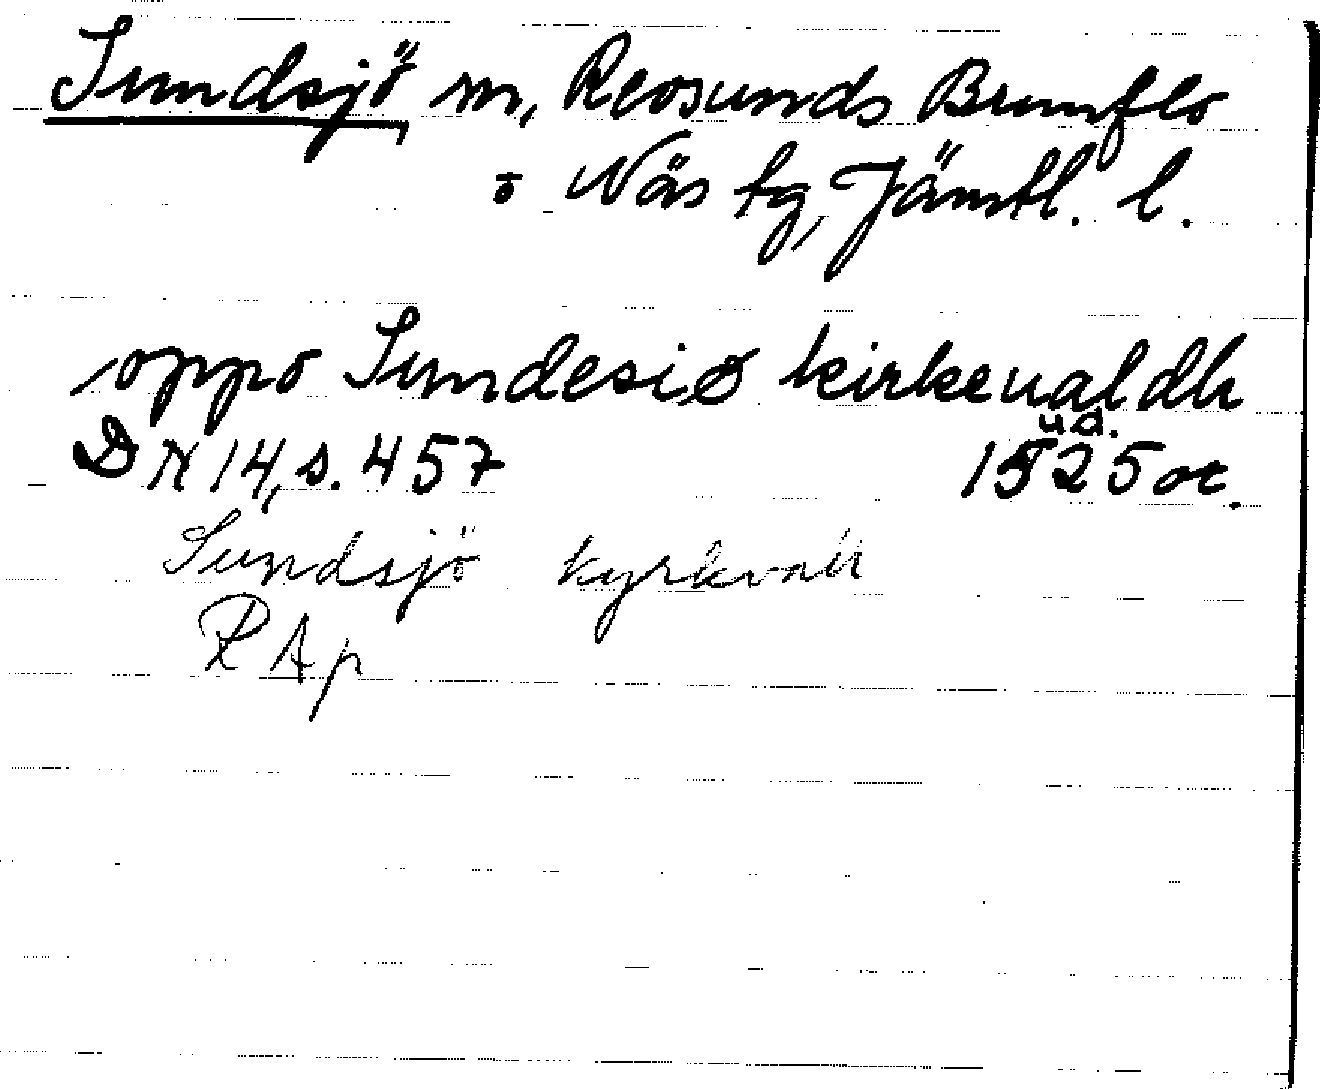 Sundsjö, sn, Revsunds Brunflo
o Näs tg, Jämtl. l.
oppo Sundesiø kirkeualdh
DN 14, s. 457 u.å. 1525 or.
Sundsjö kyrkvall
RAp